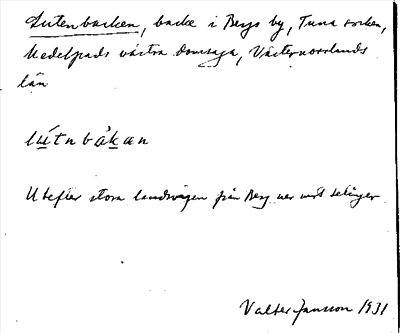 Lutenbacken, backe i Bergs by, Tuna socken,
Medelpads västra domsaga, Västernorrlands
län
lútnbåkan
Utefter stora landsvägen från Berg ner mot Selånger
Valter Jansson 1931